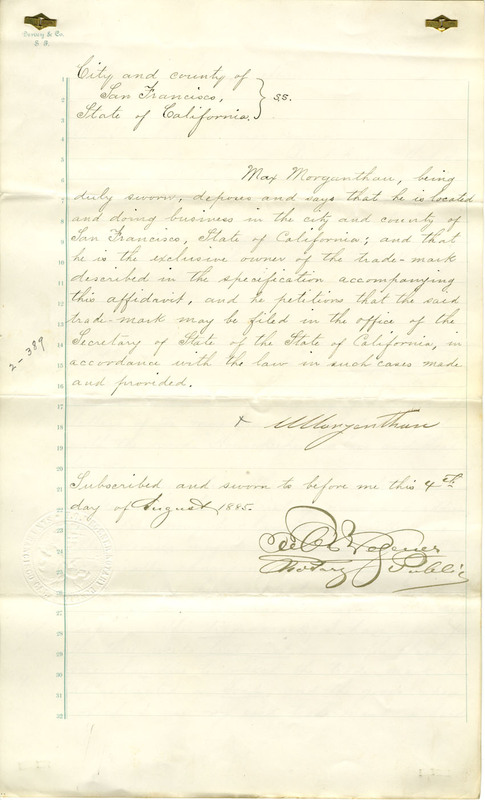 Denny & Co.
S. F.
City and county of
San Francisco, } ss.
State of California.
Max Morganthau, being
duly sworn, deposes and says that he is located
and doing business in the city and county of
San Francisco, State of California; and that
he is the exclusive owner of the trade-mark
described in the specification accompanying
this affidavit, and he petitions that the said
trade-mark may be filed in the office of the
Secretary of State of the State of California, in
accordance with the law in such cases made
and provided.
2-389
x MMorganthau
Subscribed and sworn to before me this 4th
day of August, 1885.
Notary Public
1
2
3
4
5
6
7
8
9
10
11
12
13
14
15
16
17
18
19
20
21
22
23
24
25
26
27
28
29
30
31
32